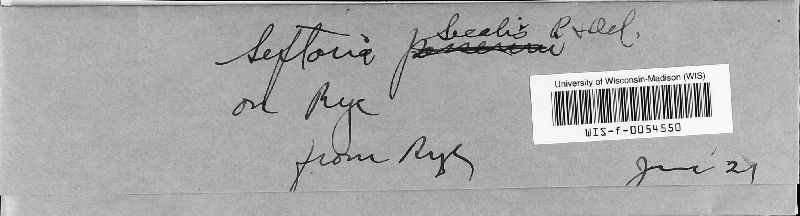 Septoria Secalis P. & Del.
on Rye
from Rye
June 21
University of Wisconsin-Madison (WIS)
WIS-f-0054550